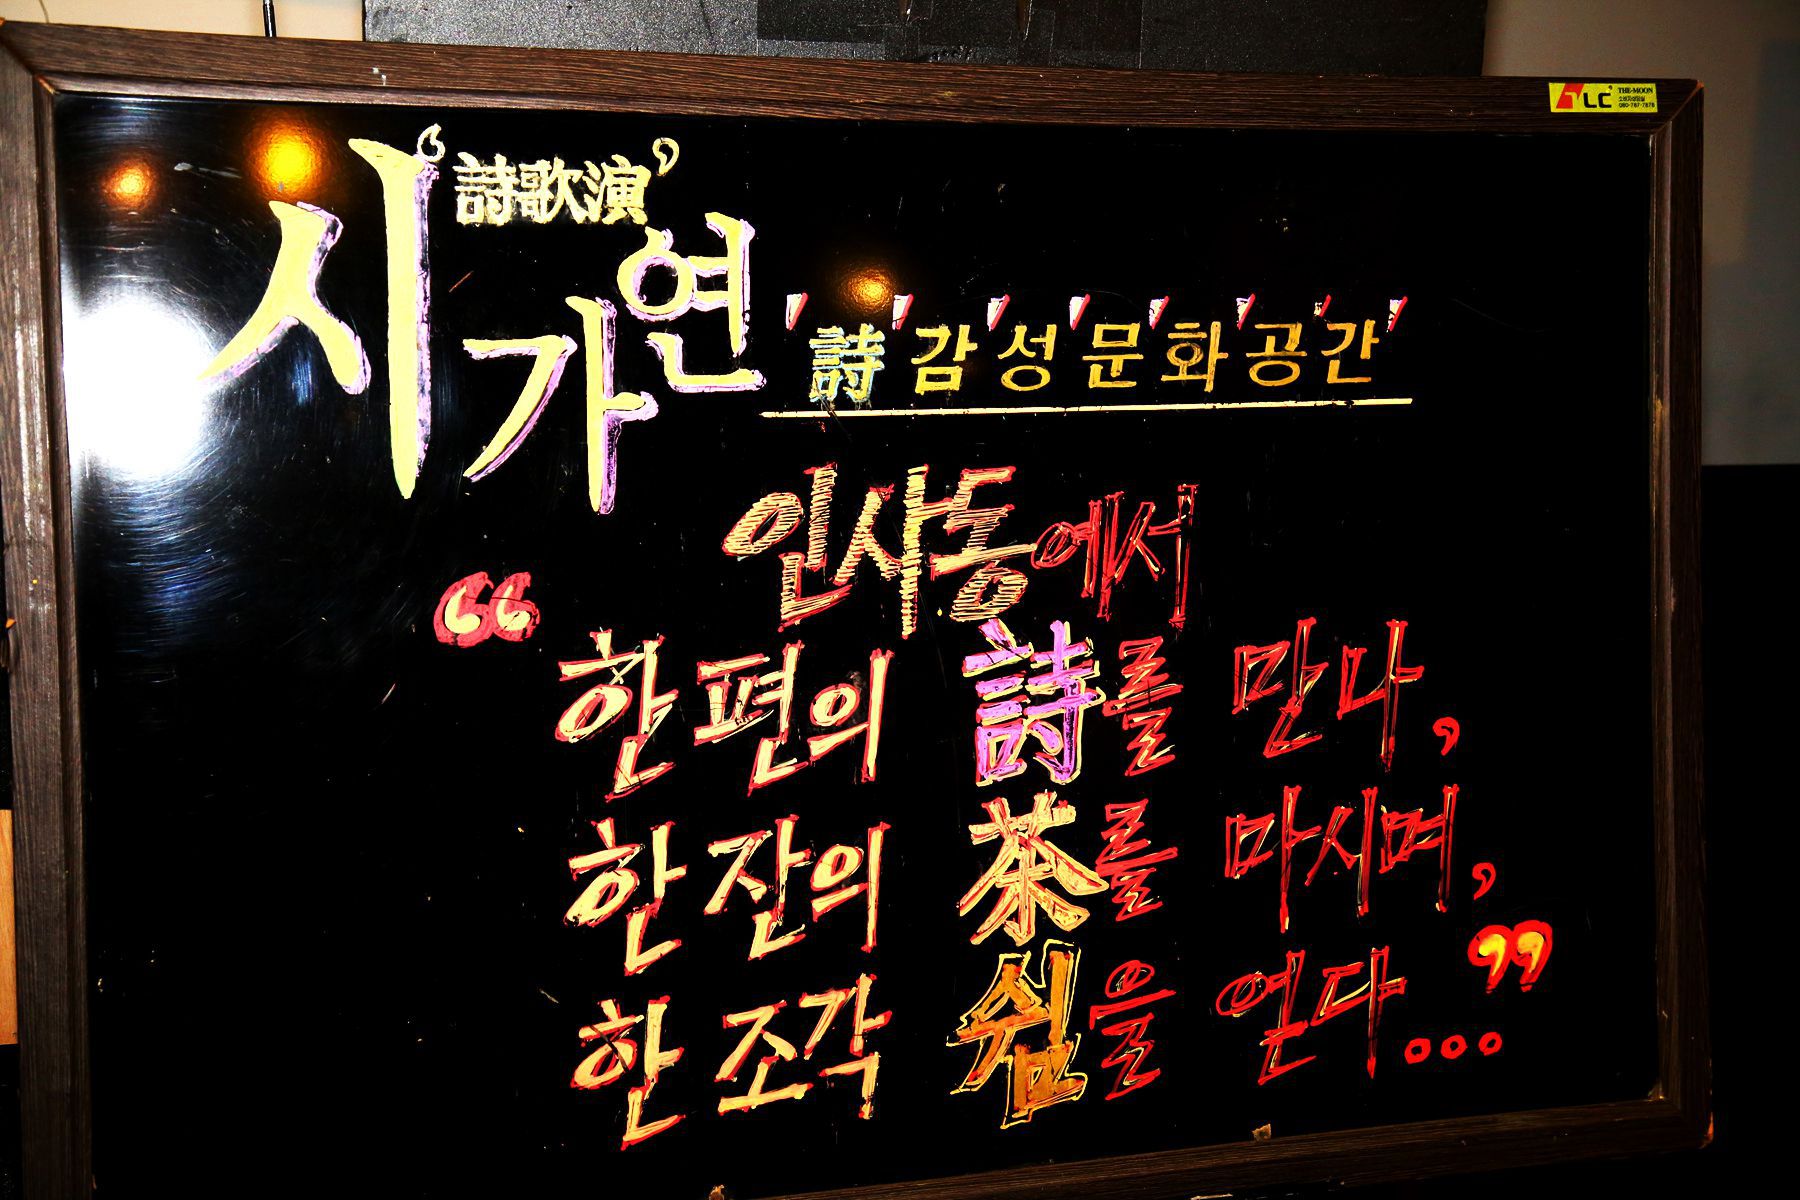 ‘詩歌演’
시가연
'詩'감'성'문'화'공'간'
인사동에서
“한 편의 詩를 만나,
한 잔의 茶를 마시며,
한 조각 쉼을 얻다...”
TLC THE-MOON